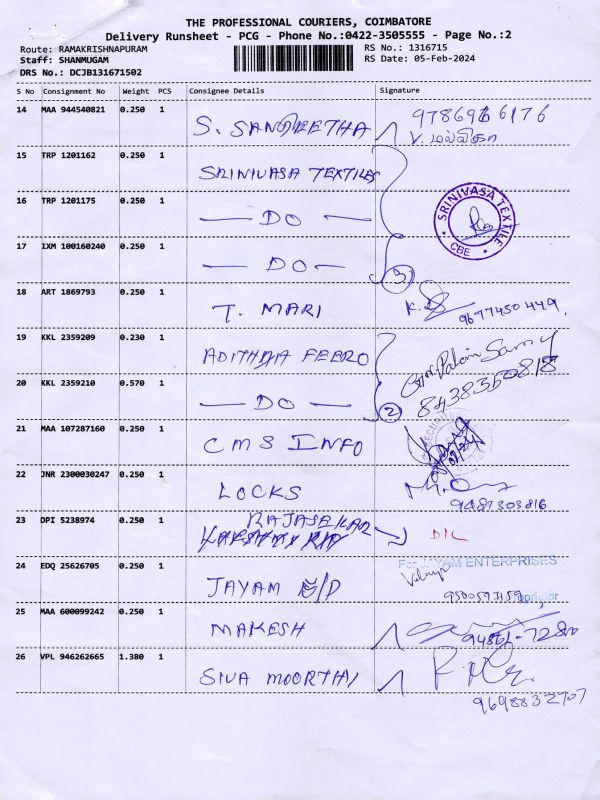 THE PROFESSIONAL COURIERS, COIMBATORE
Delivery Runsheet - PCG - Phone No.:0422-3505555 - Page No.:2
Route: RAMAKRISHNAPURAM
RS No.: 1316715
Staff: SHANMUGAM
RS Date: 05-Feb-2024
DRS No.: DCJB131671502
S No Consignment No Weight PCS Consignee Details Signature
14 MAA 944540821 0.250 1 S. SANGEETHA 9786916176
V. மல்லிகா
15 TRP 1201162 0.250 1 SRINIVASA TEXTILES
16 TRP 1201175 0.250 1 — DO — SRINIVASA TEXTILE CBE
17 IXM 100160240 0.250 1 — DO — 3
18 ART 1869793 0.250 1 T. MARI 9677450449.
19 KKL 2359209 0.230 1 ADITHYA FERRO
20 KKL 2359210 0.570 1 — DO — 2 8438350818
21 MAA 107287160 0.250 1 CMS INFO
22 JNR 2300030247 0.250 1 LOCKS 9487303816
23 DPI 5238974 0.250 1 RAJASEKAR D/L
24 EDQ 25626705 0.250 1 JAYAM E/P For JAYAM ENTERPRISES
Proprietor
25 MAA 600099242 0.250 1 MAKESH
26 VPL 946262665 1.380 1 SIVA MOORTHI
9698832707